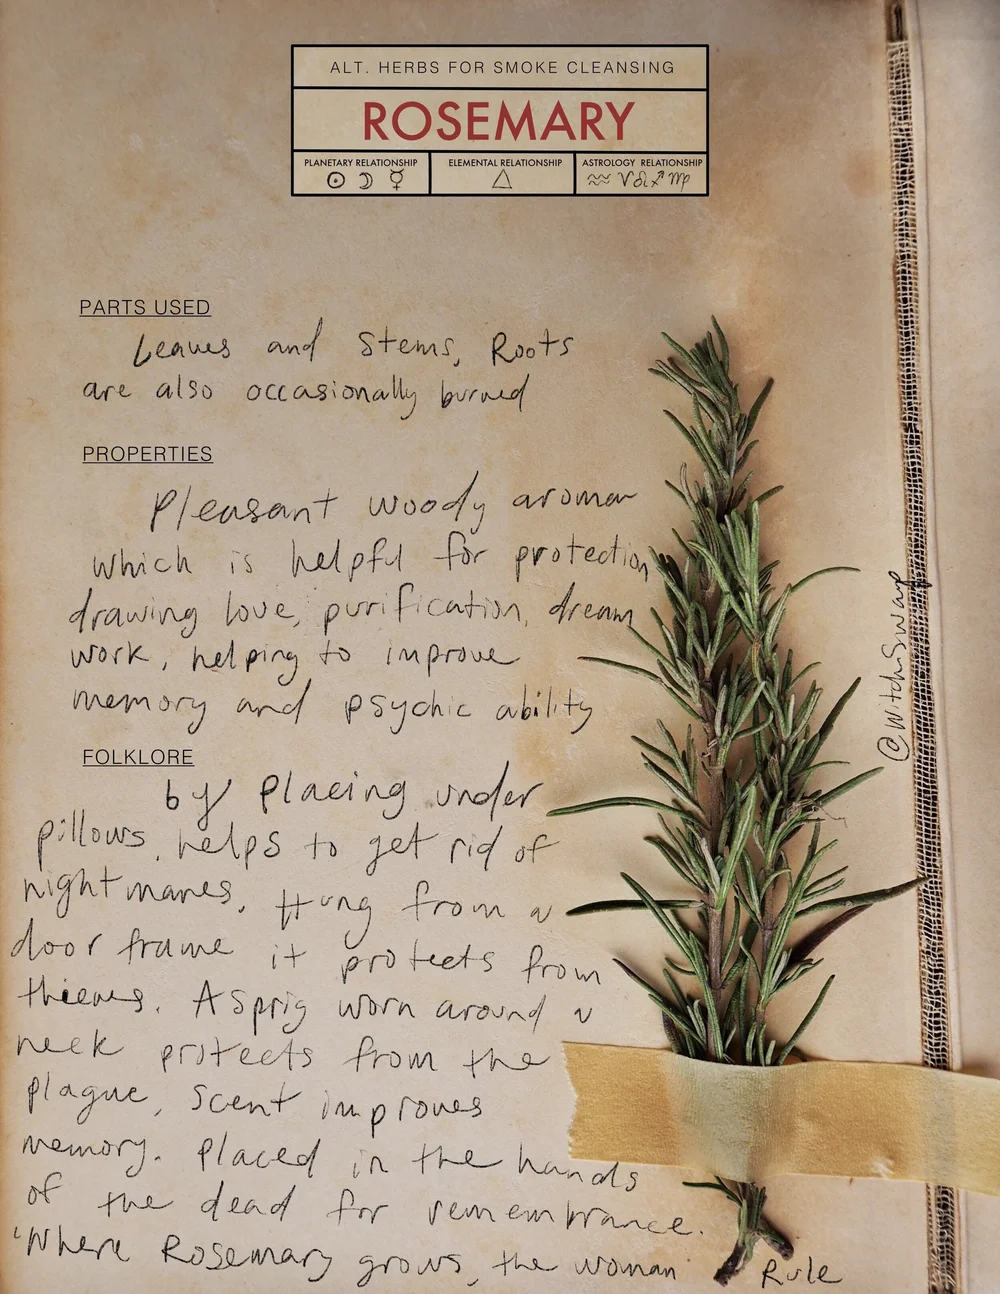 ALT. HERBS FOR SMOKE CLEANSING
ROSEMARY
PLANETARY RELATIONSHIP
☉ ☽ ☿
ELEMENTAL RELATIONSHIP
△
ASTROLOGY RELATIONSHIP
♒ ♈ ♌ ♐ ♍
PARTS USED
Leaves and Stems, Roots
are also occasionally burned
PROPERTIES
Pleasant woody aroma
which is helpful for protection,
drawing love, purification, dream
work, helping to improve
memory and psychic ability
FOLKLORE
by placing under
pillows, helps to get rid of
nightmares. Hung from a
door frame it protects from
thieves. A Sprig worn around a
neck protects from the
plague, Scent improves
memory. Placed in the hands
of the dead for remembrance.
"Where Rosemary grows, the woman Rule
@WitchSwap